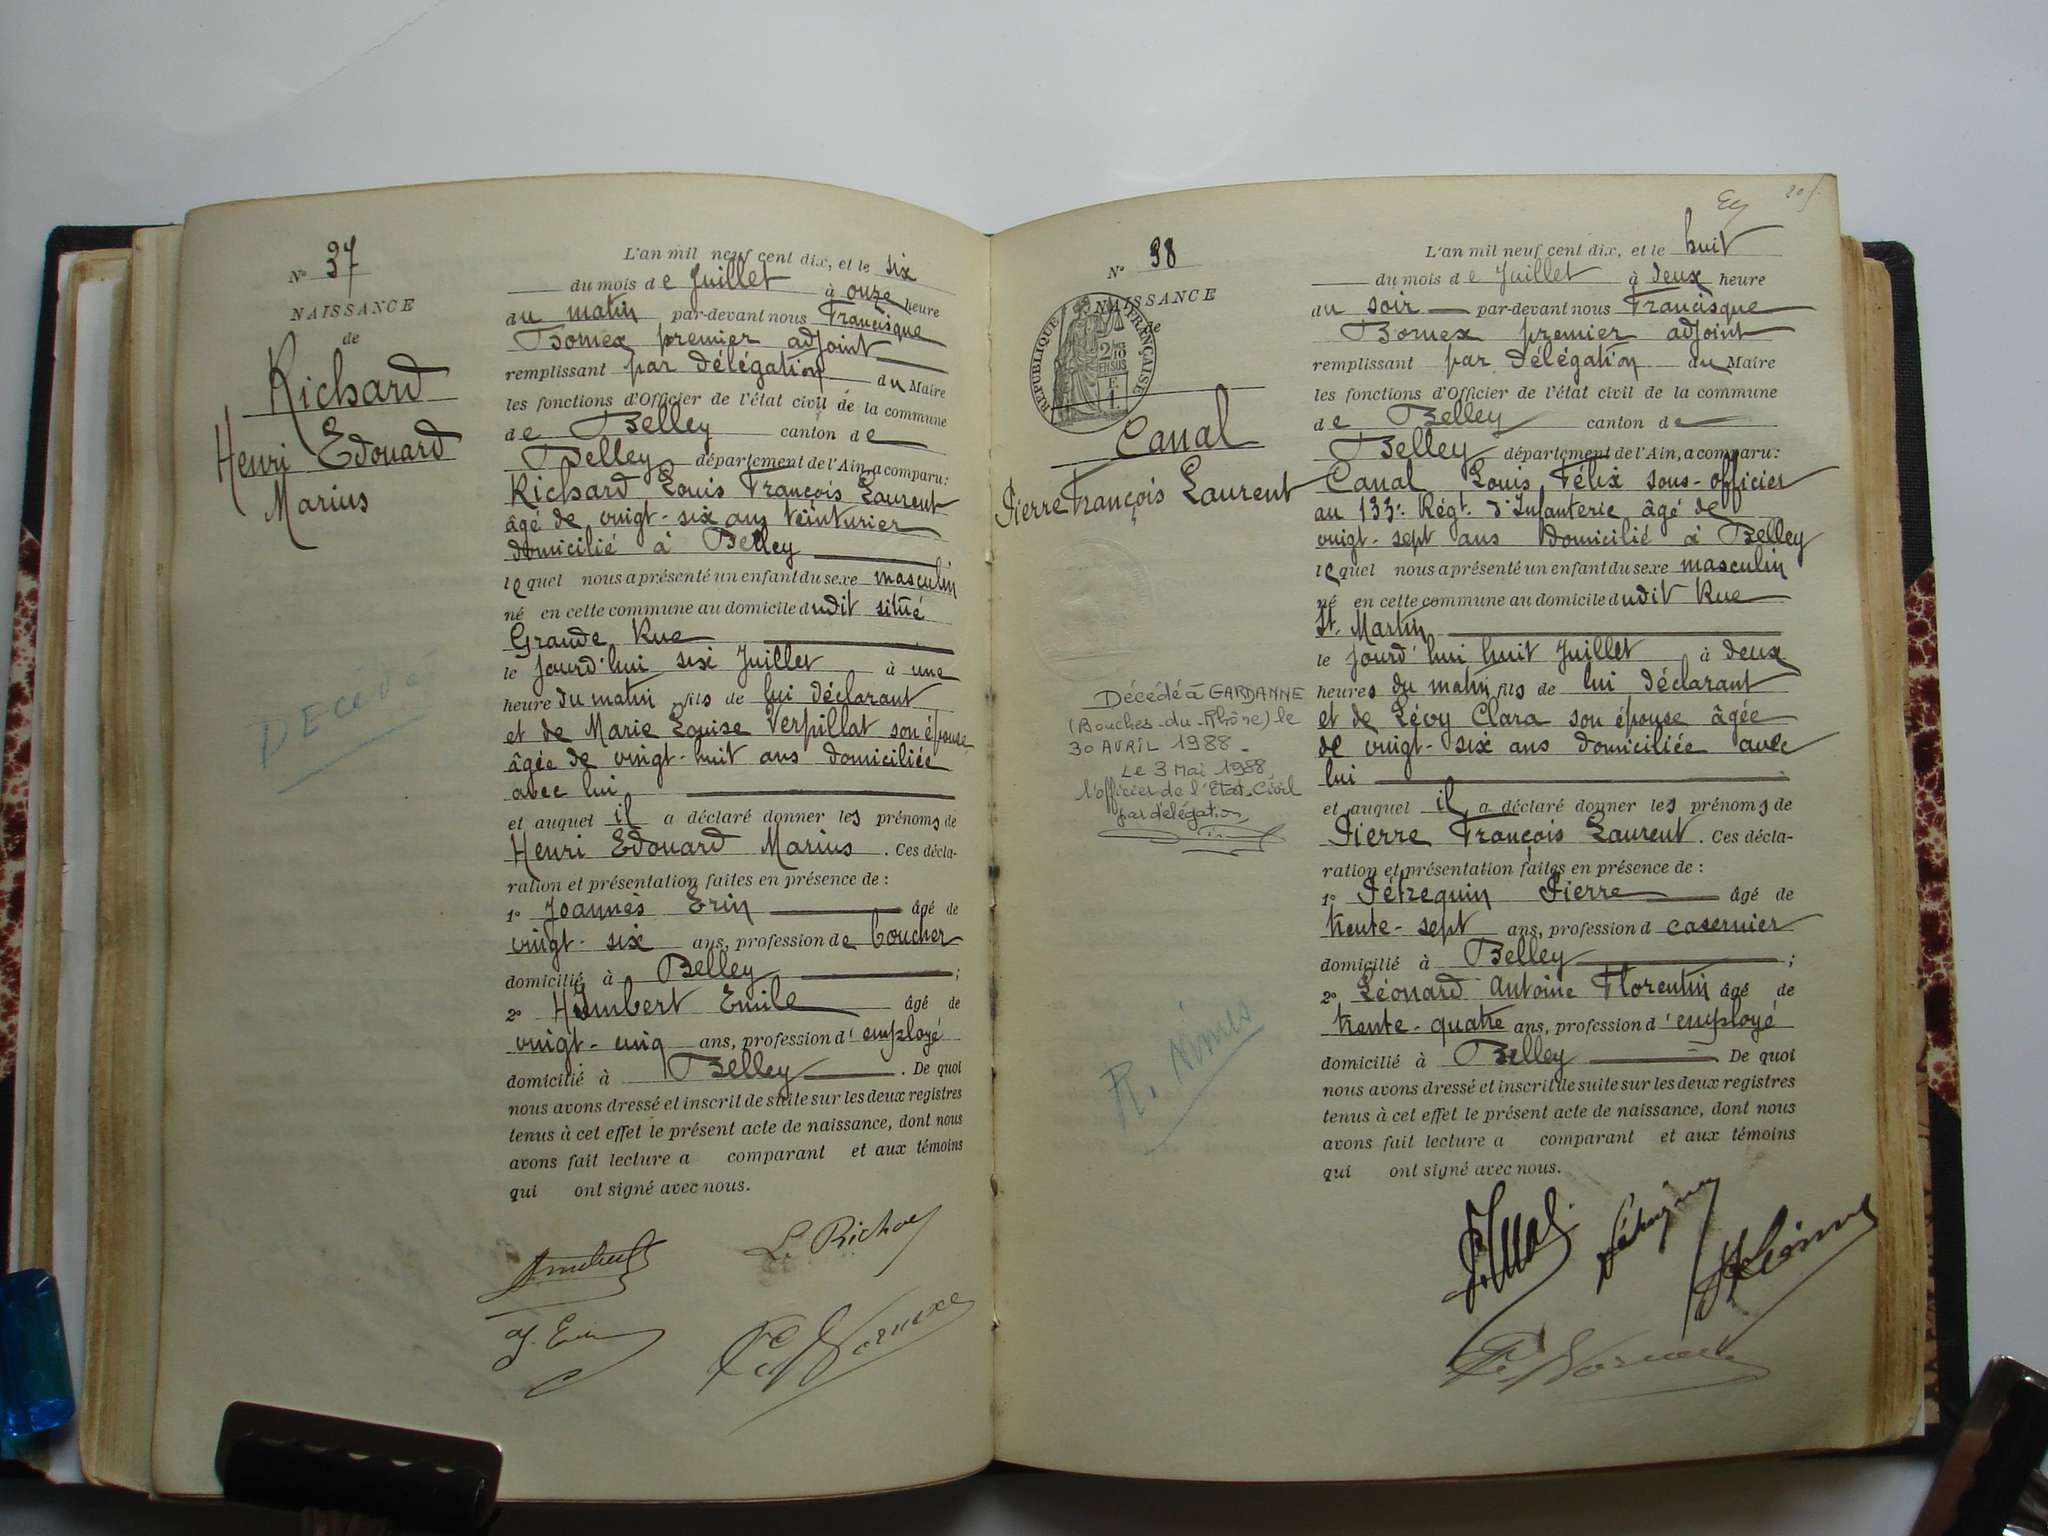 N° 37
NAISSANCE
de
Richard
Henri Edouard
Marius
Décédé
L'an mil neuf cent dix, et le six
du mois de Juillet à onze heure
du matin par-devant nous Francisque
Bornex premier adjoint
remplissant par délégation du Maire
les fonctions d'Officier de l'état civil de la commune
de Belley canton de
Belley département de l'Ain, a comparu:
Richard Louis François Laurent
âgé de vingt-six ans teinturier
domicilié à Belley
lequel nous a présenté un enfant du sexe masculin
né en cette commune au domicile dudit situé
Grande Rue
le jourd'hui six Juillet à une
heure du matin fils de lui déclarant
et de Marie Louise Verpillat son épouse
âgée de vingt-huit ans domiciliée
avec lui
et auquel il a déclaré donner les prénoms de
Henri Edouard Marius. Ces décla-
ration et présentation faites en présence de:
1° Joannès Erin âgé de
vingt-six ans, profession de boucher
domicilié à Belley;
2° Humbert Emile âgé de
vingt-cinq ans, profession d'employé
domicilié à Belley. De quoi
nous avons dressé et inscrit de suite sur les deux registres
tenus à cet effet le présent acte de naissance, dont nous
avons fait lecture a comparant et aux témoins
qui ont signé avec nous.
L. Richard
J. Erin
F. Bornex
20
N° 38
NAISSANCE
de
RÉPUBLIQUE FRANÇAISE
2/10
EN SUS
Canal
Pierre François Laurent
Décédé à GARDANNE
(Bouches-du-Rhône) le
30 AVRIL 1988.
Le 3 Mai 1988,
l'officier de l'Etat-Civil
par délégation,
R. Nîmes
L'an mil neuf cent dix, et le huit
du mois de Juillet à deux heure
du soir par-devant nous Francisque
Bornex premier adjoint
remplissant par délégation du Maire
les fonctions d'Officier de l'état civil de la commune
de Belley canton de
Belley département de l'Ain, a comparu:
Canal Louis Félix sous-officier
au 133e Régt. d'Infanterie âgé de
vingt-sept ans domicilié à Belley
lequel nous a présenté un enfant du sexe masculin
né en cette commune au domicile dudit Rue
St. Martin
le jourd'hui huit Juillet à deux
heures du matin fils de lui déclarant
et de Lévy Clara son épouse âgée
de vingt-six ans domiciliée avec
lui
et auquel il a déclaré donner les prénoms de
Pierre François Laurent. Ces décla-
ration et présentation faites en présence de:
1° Pétrequin Pierre âgé de
trente-sept ans, profession d casernier
domicilié à Belley;
2° Léonard Antoine Florentin âgé de
trente-quatre ans, profession d'employé
domicilié à Belley De quoi
nous avons dressé et inscrit de suite sur les deux registres
tenus à cet effet le présent acte de naissance, dont nous
avons fait lecture a comparant et aux témoins
qui ont signé avec nous.
F. Bornex